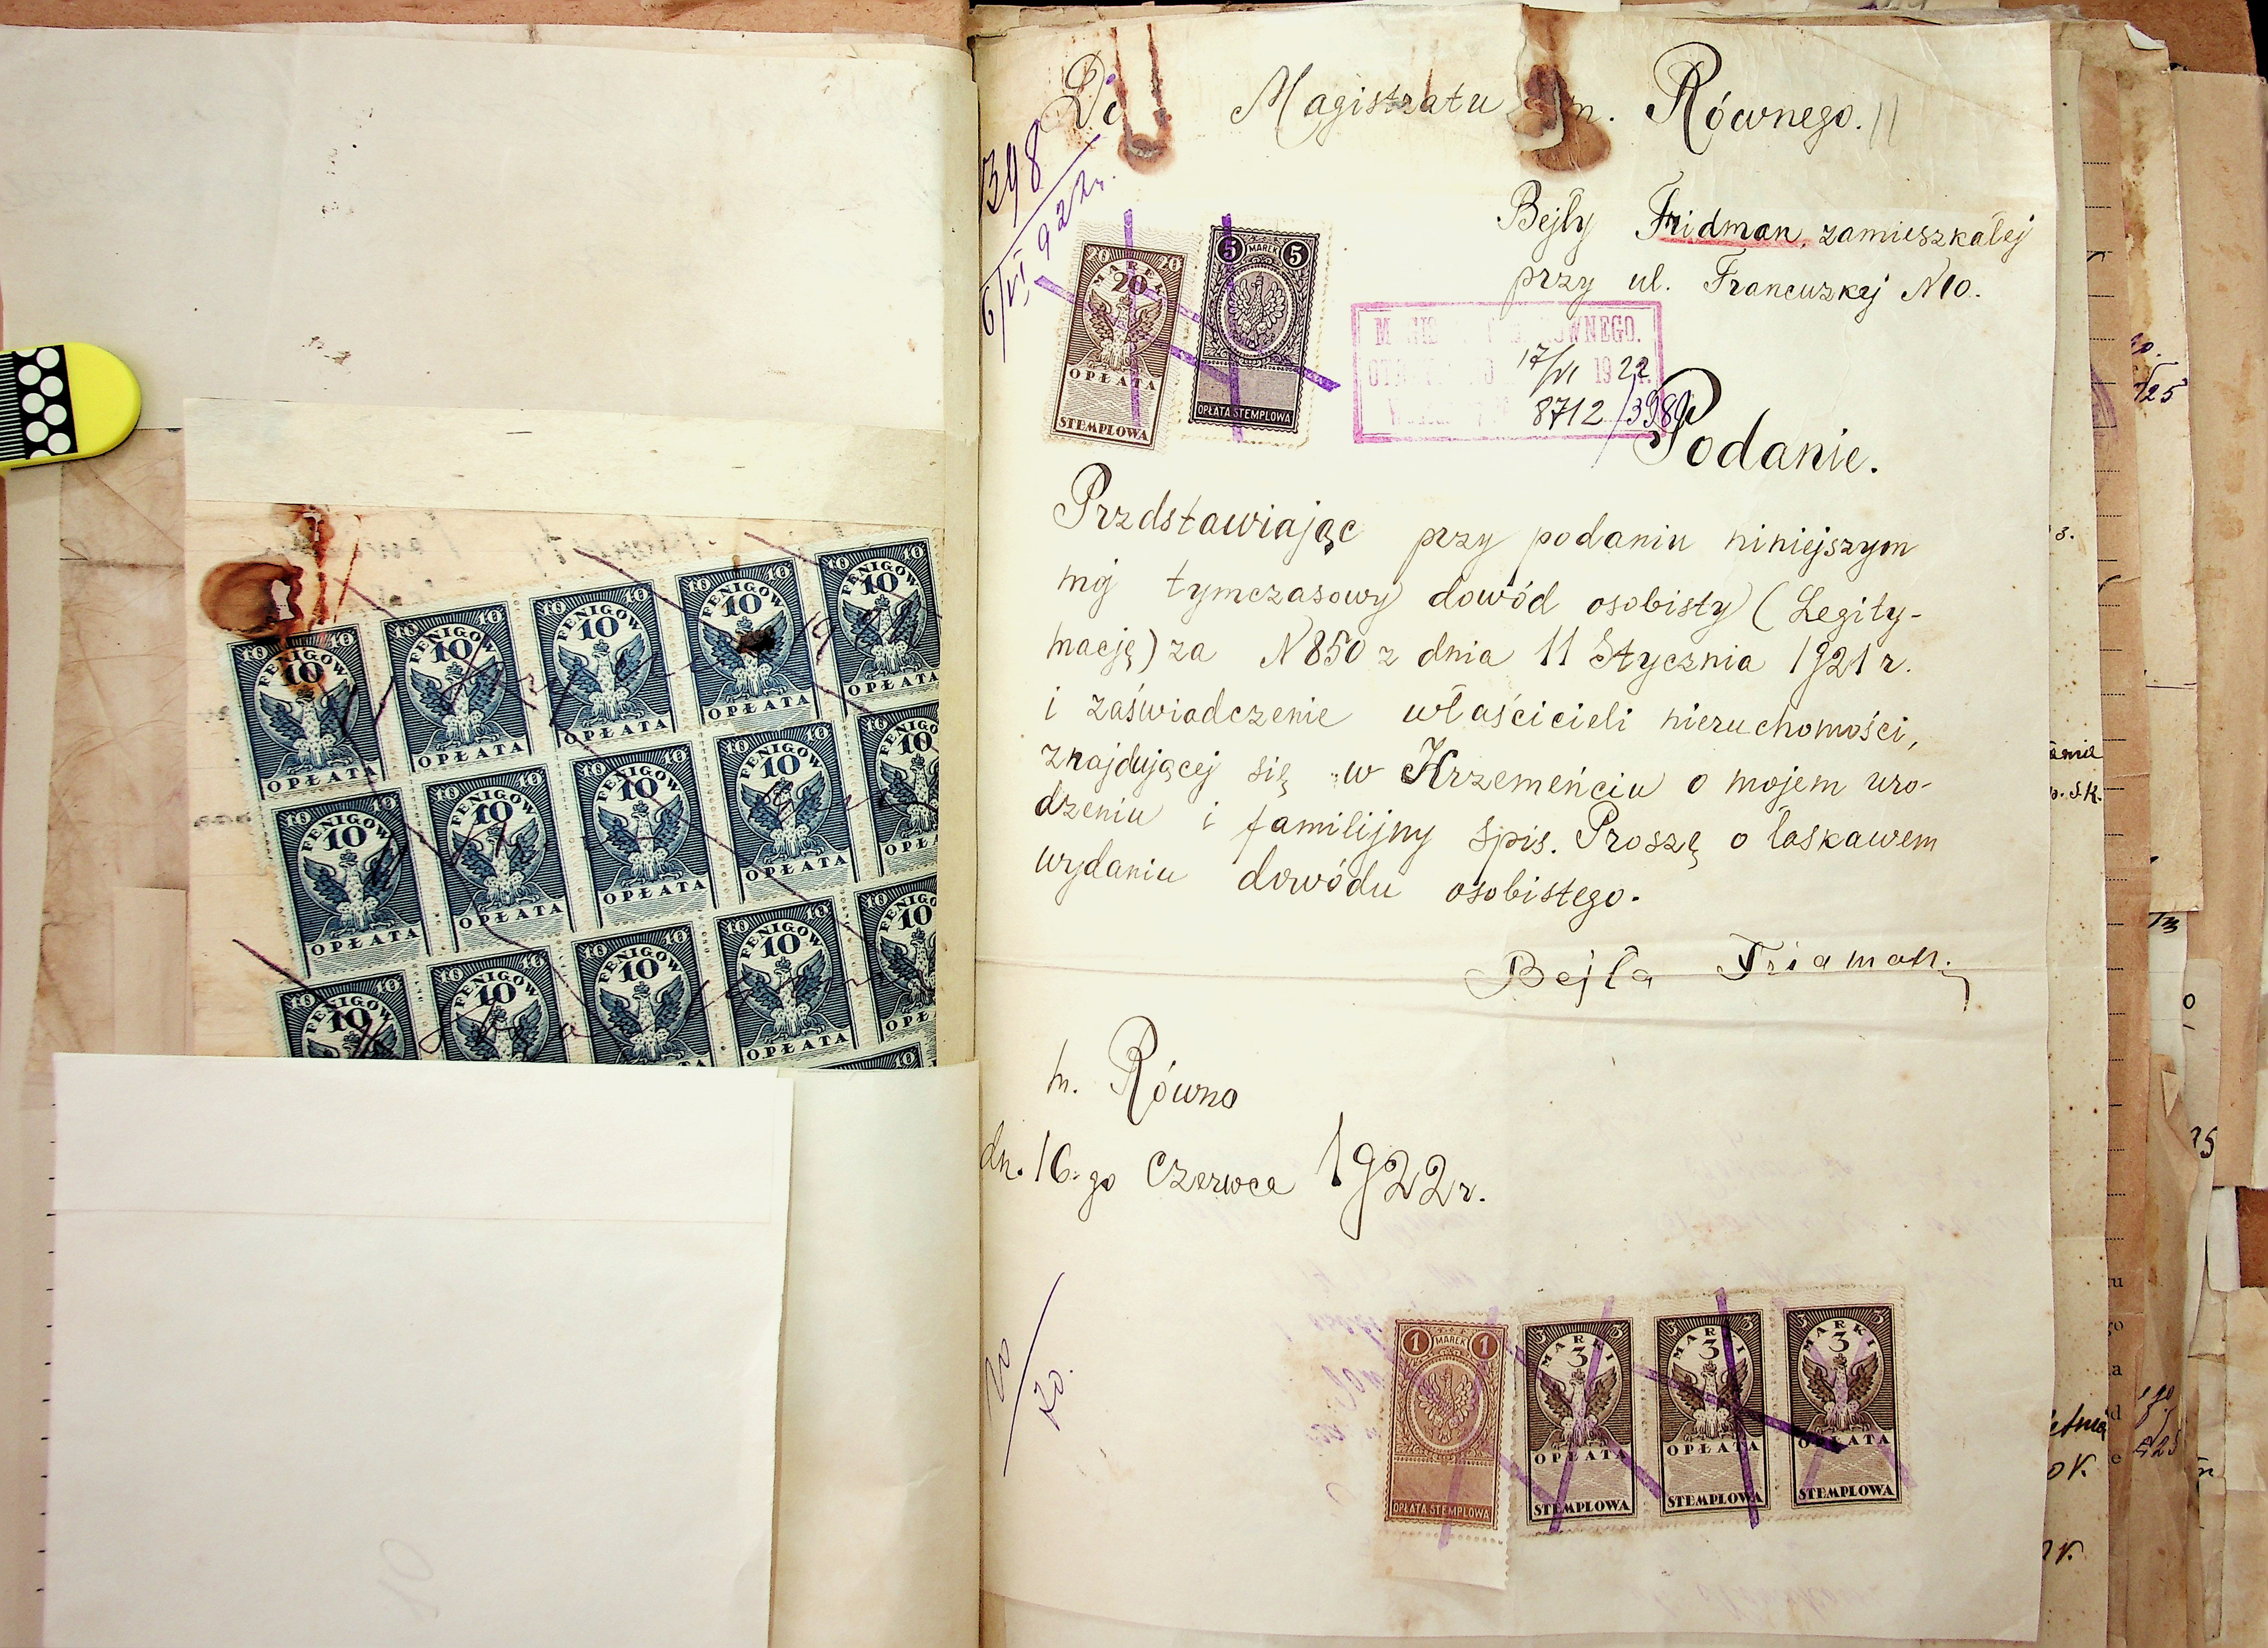 Do Magistratu m. Równego.
398
6/VI 922 r.
Bejły Fridman, zamieszkałej
przy ul. Francuzkej N10.
20 20
MAREK
20
OPŁATA
STEMPLOWA
5 MAREK 5
OPŁATA STEMPLOWA
RÓWNEGO.
17/VI 1922 r.
8712/398
Podanie.
Przdstawiając przy podaniu niniejszym
mój tymczasowy dowód osobisty (Legity-
mację) za N850 z dnia 11 Stycznia 1921 r.
i zaświadczenie właścicieli nieruchomości,
znajdującej się w Krzemeńciu o mojem uro-
dzeniu i familijny spis. Proszę o łaskawem
wydaniu dowódu osobistego.
Bejła Fridman.
m. Równo
dn. 16-go Czerwca 1922 r.
1 MAREK 1
OPŁATA STEMPLOWA
3 MARKI 3
3
OPŁATA
STEMPLOWA
3 MARKI 3
3
OPŁATA
STEMPLOWA
3 MARKI 3
3
OPŁATA
STEMPLOWA
10 FENIGOW 10
10
OPŁATA
10 FENIGOW 10
10
OPŁATA
10 FENIGOW 10
10
OPŁATA
10 FENIGOW 10
10
OPŁATA
10 FENIGOW 10
10
OPŁATA
10 FENIGOW 10
10
OPŁATA
10 FENIGOW 10
10
OPŁATA
10 FENIGOW 10
10
OPŁATA
10 FENIGOW 10
10
OPŁATA
10 FENIGOW
10
OPŁATA
10 FENIGOW 10
10
10 FENIGOW 10
10
10 FENIGOW 10
10
OPŁATA
10 FENIGOW 10
10
OPŁATA
10 FENIGOW
10